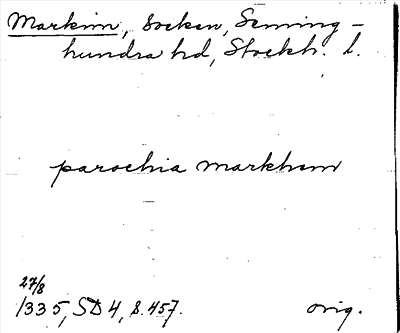 Markim, Socken, Seming-
hundra hd, Stockh. l.
parochia markhem
27/8
1335, SD 4, s. 457.
orig.